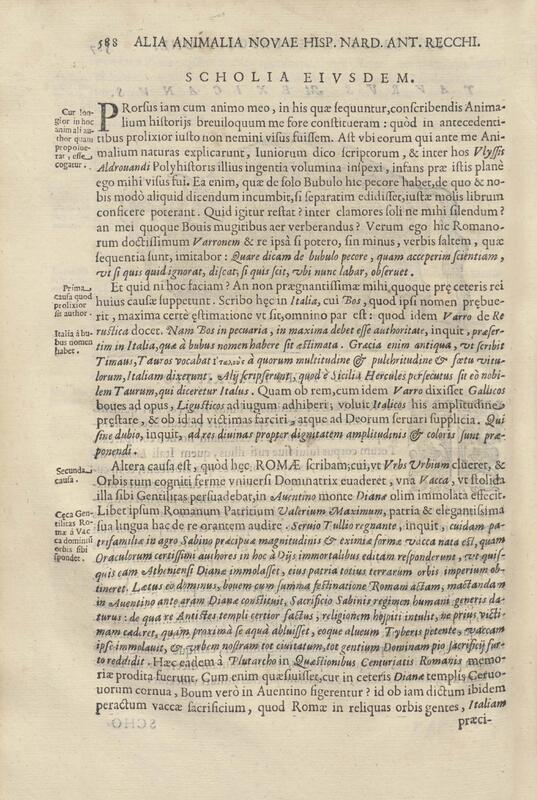 588 ALIA ANIMALIA NOVAE HISP. NARD. ANT. RECCHI.
SCHOLIA EIVSDEM.
Cur lon-
gior in hoc
animali au-
thor quam
propoſue-
rat, eſſe
cogatur.
PRorſus iam cum animo meo, in his quæ ſequuntur, conſcribendis Anima-
lium hiſtorijs breuiloquum me fore conſtitueram: quòd in antecedenti-
tibus prolixior iuſto non nemini viſus fuiſſem. Aſt vbi eorum qui ante me Ani-
malium naturas explicarunt, Iuniorum dico ſcriptorum, & inter hos Vlyſſis
Aldrouandi Polyhiſtoris illius ingentia volumina inſpexi, infans præ iſtis planè
ego mihi viſus fui. Ea enim, quæ de ſolo Bubulo hic pecore habet, de quo & no-
bis modò aliquid dicendum incumbit, ſi ſeparatim edidiſſet, iuſtæ molis librum
conficere poterant. Quid igitur reſtat? inter clamores ſoli ne mihi ſilendum?
an mei quoque Bouis mugitibus aer verberandus? Verum ego hic Romano-
rum doctiſſimum Varronem & re ipſa ſi potero, ſin minus, verbis ſaltem, quæ
ſequentia ſunt, imitabor: Quare dicam de bubulo pecore, quam acceperim ſcientiam,
vt ſi quis quid ignorat, diſcat, ſi quis ſcit, vbi nunc labar, obſeruet.
Prima
cauſa quod
prolixior
ſit author.
Et quid ni hoc faciam? An non prægnantiſſimæ mihi, quoque prę ceteris rei
huius cauſæ ſuppetunt. Scribo hęc in Italia, cui Bos, quod ipſi nomen prębue-
rit, maxima certe ęſtimatione vt ſit, omnino par eſt: quod idem Varro de Re
ruſtica docet. Nam Bos in pecuaria, in maxima debet eſſe authoritate, inquit, præſer-
Italia à bu-
bus nomen
habet.
tim in Italia, quæ à bubus nomen habere ſit æſtimata. Græcia enim antiqua, vt ſcribit
Timæus, Tauros vocabat ἰταλοὺς à quorum multitudine & pulchritudine & fœtu vitu-
lorum, Italiam dixerunt. Alij ſcripſerunt, quod è Sicilia Hercules perſecutus ſit eò nobi-
lem Taurum, qui diceretur Italus. Quam ob rem, cum idem Varro dixiſſet Gallicos
boues ad opus, Liguſticos ad iugum adhiberi; voluit Italicos his amplitudine
pręſtare, & ob id ad victimas farciri, atque ad Deorum ſeruari ſupplicia. Qui
ſine dubio, inquit, ad res diuinas propter dignitatem amplitudinis & coloris ſunt præ-
ponendi.
Secunda
cauſa.
Altera cauſa eſt, quòd hęc ROMÆ ſcribam; cui, vt Vrbs Vrbium clueret, &
Orbis tum cogniti ferme vniuerſi Dominatrix euaderet, vna Vacca, vt ſtolida
illa ſibi Gentilitas perſuadebat, in Auentino monte Dianæ olim immolata effecit.
Cęca Gen-
tilitas Ro-
mæ à Vac
ca dominiũ
orbis ſibi
ſpondet.
Libet ipſum Romanum Patritium Valerium Maximum, patria & elegantiſſima
ſua lingua hac de re orantem audire. Seruio Tullio regnante, inquit, cuidam pa-
trifamiliæ in agro Sabino præcipuæ magnitudinis & eximiæ formæ vacca nata eſt, quam
Oraculorum certiſſimi authores in hoc à Dijs immortalibus editam reſponderunt, vt quiſ-
quis eam Athenienſi Dianæ immolaſſet, eius patria totius terrarum orbis imperium ob-
tineret. Lætus eo dominus, bouem cum ſumma feſtinatione Romam actam, mactandam
in Auentino ante aram Dianæ conſtituit, Sacrificio Sabinis regimen humani generis da-
turus: de qua re Antiſtes templi certior factus, religionem hoſpiti intulit, ne prius victi-
mam cæderet, quam proxima ſe aqua abluiſſet, eoque alueum Tyberis petente, vaccam
ipſe immolauit, & vrbem noſtram tot ciuitatum, tot gentium Dominam pio ſacrificij fur-
to reddidit. Hæc eadem à Plutarcho in Quæſtionibus Centuriatis Romanis memo-
riæ prodita fuerunt. Cum enim quæſiuiſſet, cur in ceteris Dianæ templis Ceruo-
uorum cornua, Boum verò in Auentino figerentur? id ob iam dictum ibidem
peractum vaccæ ſacrificium, quod Romæ in reliquas orbis gentes, Italiam
præci-